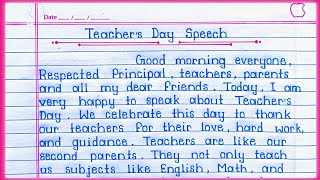 Date __/__/__
Teacher's Day Speech
Good morning everyone,
Respected Principal, teachers, parents
and all my dear friends. Today, I am
very happy to speak about Teacher's
Day. We celebrate this day to thank
our teachers for their love, hard work,
and guidance. Teachers are like our
second parents. They not only teach
us subjects like English, Math, and